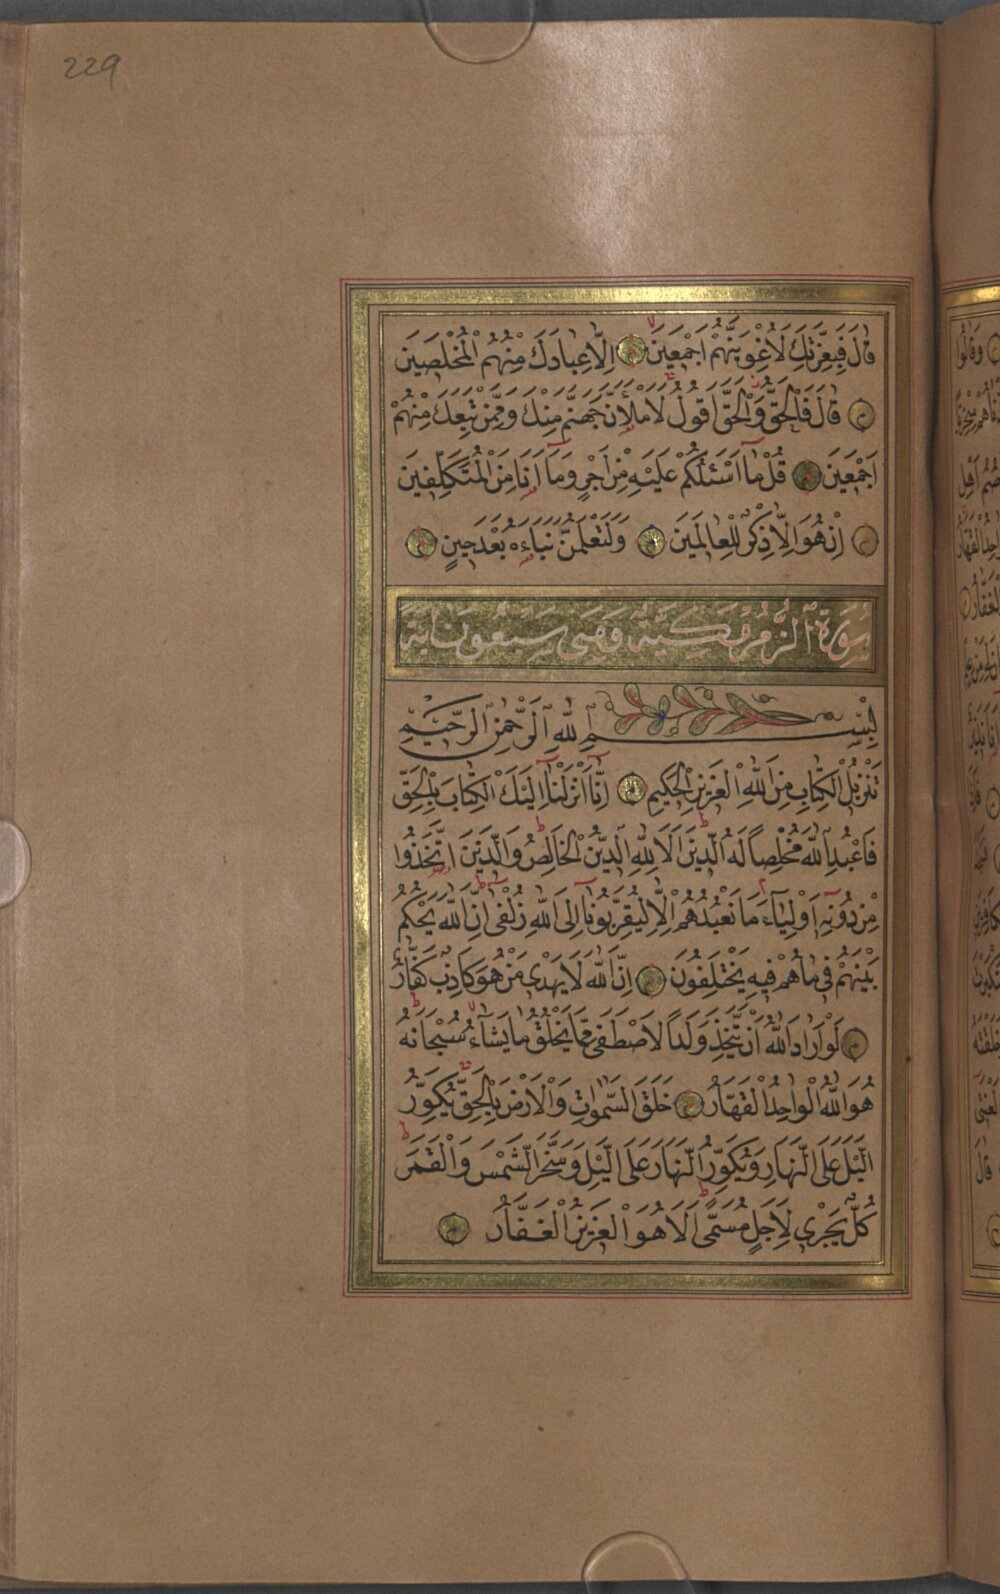 229
قَالَ فَبِعِزَّتِكَ لَاُغْوِيَنَّهُمْ اَجْمَعِينَ اِلَّا عِبَادَكَ مِنْهُمُ الْمُخْلَصِينَ
قَالَ فَالْحَقُّ وَالْحَقَّ اَقُولُ لَاَمْلَأَنَّ جَهَنَّمَ مِنْكَ وَمِمَّنْ تَبِعَكَ مِنْهُمْ
اَجْمَعِينَ قُلْ مَٓا اَسْـَٔلُكُمْ عَلَيْهِ مِنْ اَجْرٍ وَمَٓا اَنَا مِنَ الْمُتَكَلِّفِينَ
اِنْ هُوَ اِلَّا ذِكْرٌ لِلْعَالَمِينَ وَلَتَعْلَمُنَّ نَبَاَهُ بَعْدَ حِينٍ
سُورَةُ الزُّمَرِ مَكِّيَّةٌ وَهِىَ سَبْعُونَ اٰيَةً
بِسْمِ اللّٰهِ الرَّحْمٰنِ الرَّحِيمِ
تَنْزِيلُ الْكِتَابِ مِنَ اللّٰهِ الْعَزِيزِ الْحَكِيمِ اِنَّٓا اَنْزَلْنَٓا اِلَيْكَ الْكِتَابَ بِالْحَقِّ
فَاعْبُدِ اللّٰهَ مُخْلِصًا لَهُ الدِّينَ اَلَا لِلّٰهِ الدِّينُ الْخَالِصُ وَالَّذِينَ اتَّخَذُوا
مِنْ دُونِهِٓ اَوْلِيَٓاءَ مَا نَعْبُدُهُمْ اِلَّا لِيُقَرِّبُونَٓا اِلَى اللّٰهِ زُلْفٰى اِنَّ اللّٰهَ يَحْكُمُ
بَيْنَهُمْ فِى مَا هُمْ فِيهِ يَخْتَلِفُونَ اِنَّ اللّٰهَ لَا يَهْدِى مَنْ هُوَ كَاذِبٌ كَفَّارٌ
لَوْ اَرَادَ اللّٰهُ اَنْ يَتَّخِذَ وَلَدًا لَاصْطَفٰى مِمَّا يَخْلُقُ مَا يَشَٓاءُ سُبْحَانَهُ
هُوَ اللّٰهُ الْوَاحِدُ الْقَهَّارُ خَلَقَ السَّمٰوَاتِ وَالْاَرْضَ بِالْحَقِّ يُكَوِّرُ
الَّيْلَ عَلَى النَّهَارِ وَيُكَوِّرُ النَّهَارَ عَلَى الَّيْلِ وَسَخَّرَ الشَّمْسَ وَالْقَمَرَ
كُلٌّ يَجْرِى لِاَجَلٍ مُسَمًّى اَلَا هُوَ الْعَزِيزُ الْغَفَّارُ